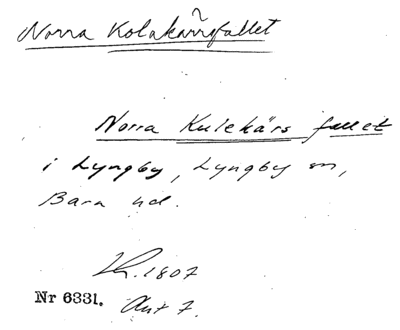 Norra Kolakärrsfallet
Norra Kulekärs fallet
i Lyngby, Lyngby sn,
Bara hd.
1807
Nr 6331. Akt 7.